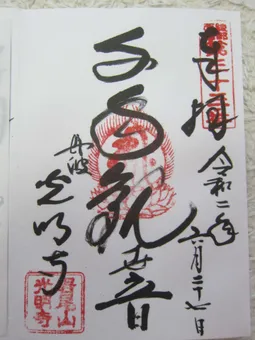 奉拝
令和二年
六月二十七日
千手観世音
丹波
光明寺
君尾山
光明寺